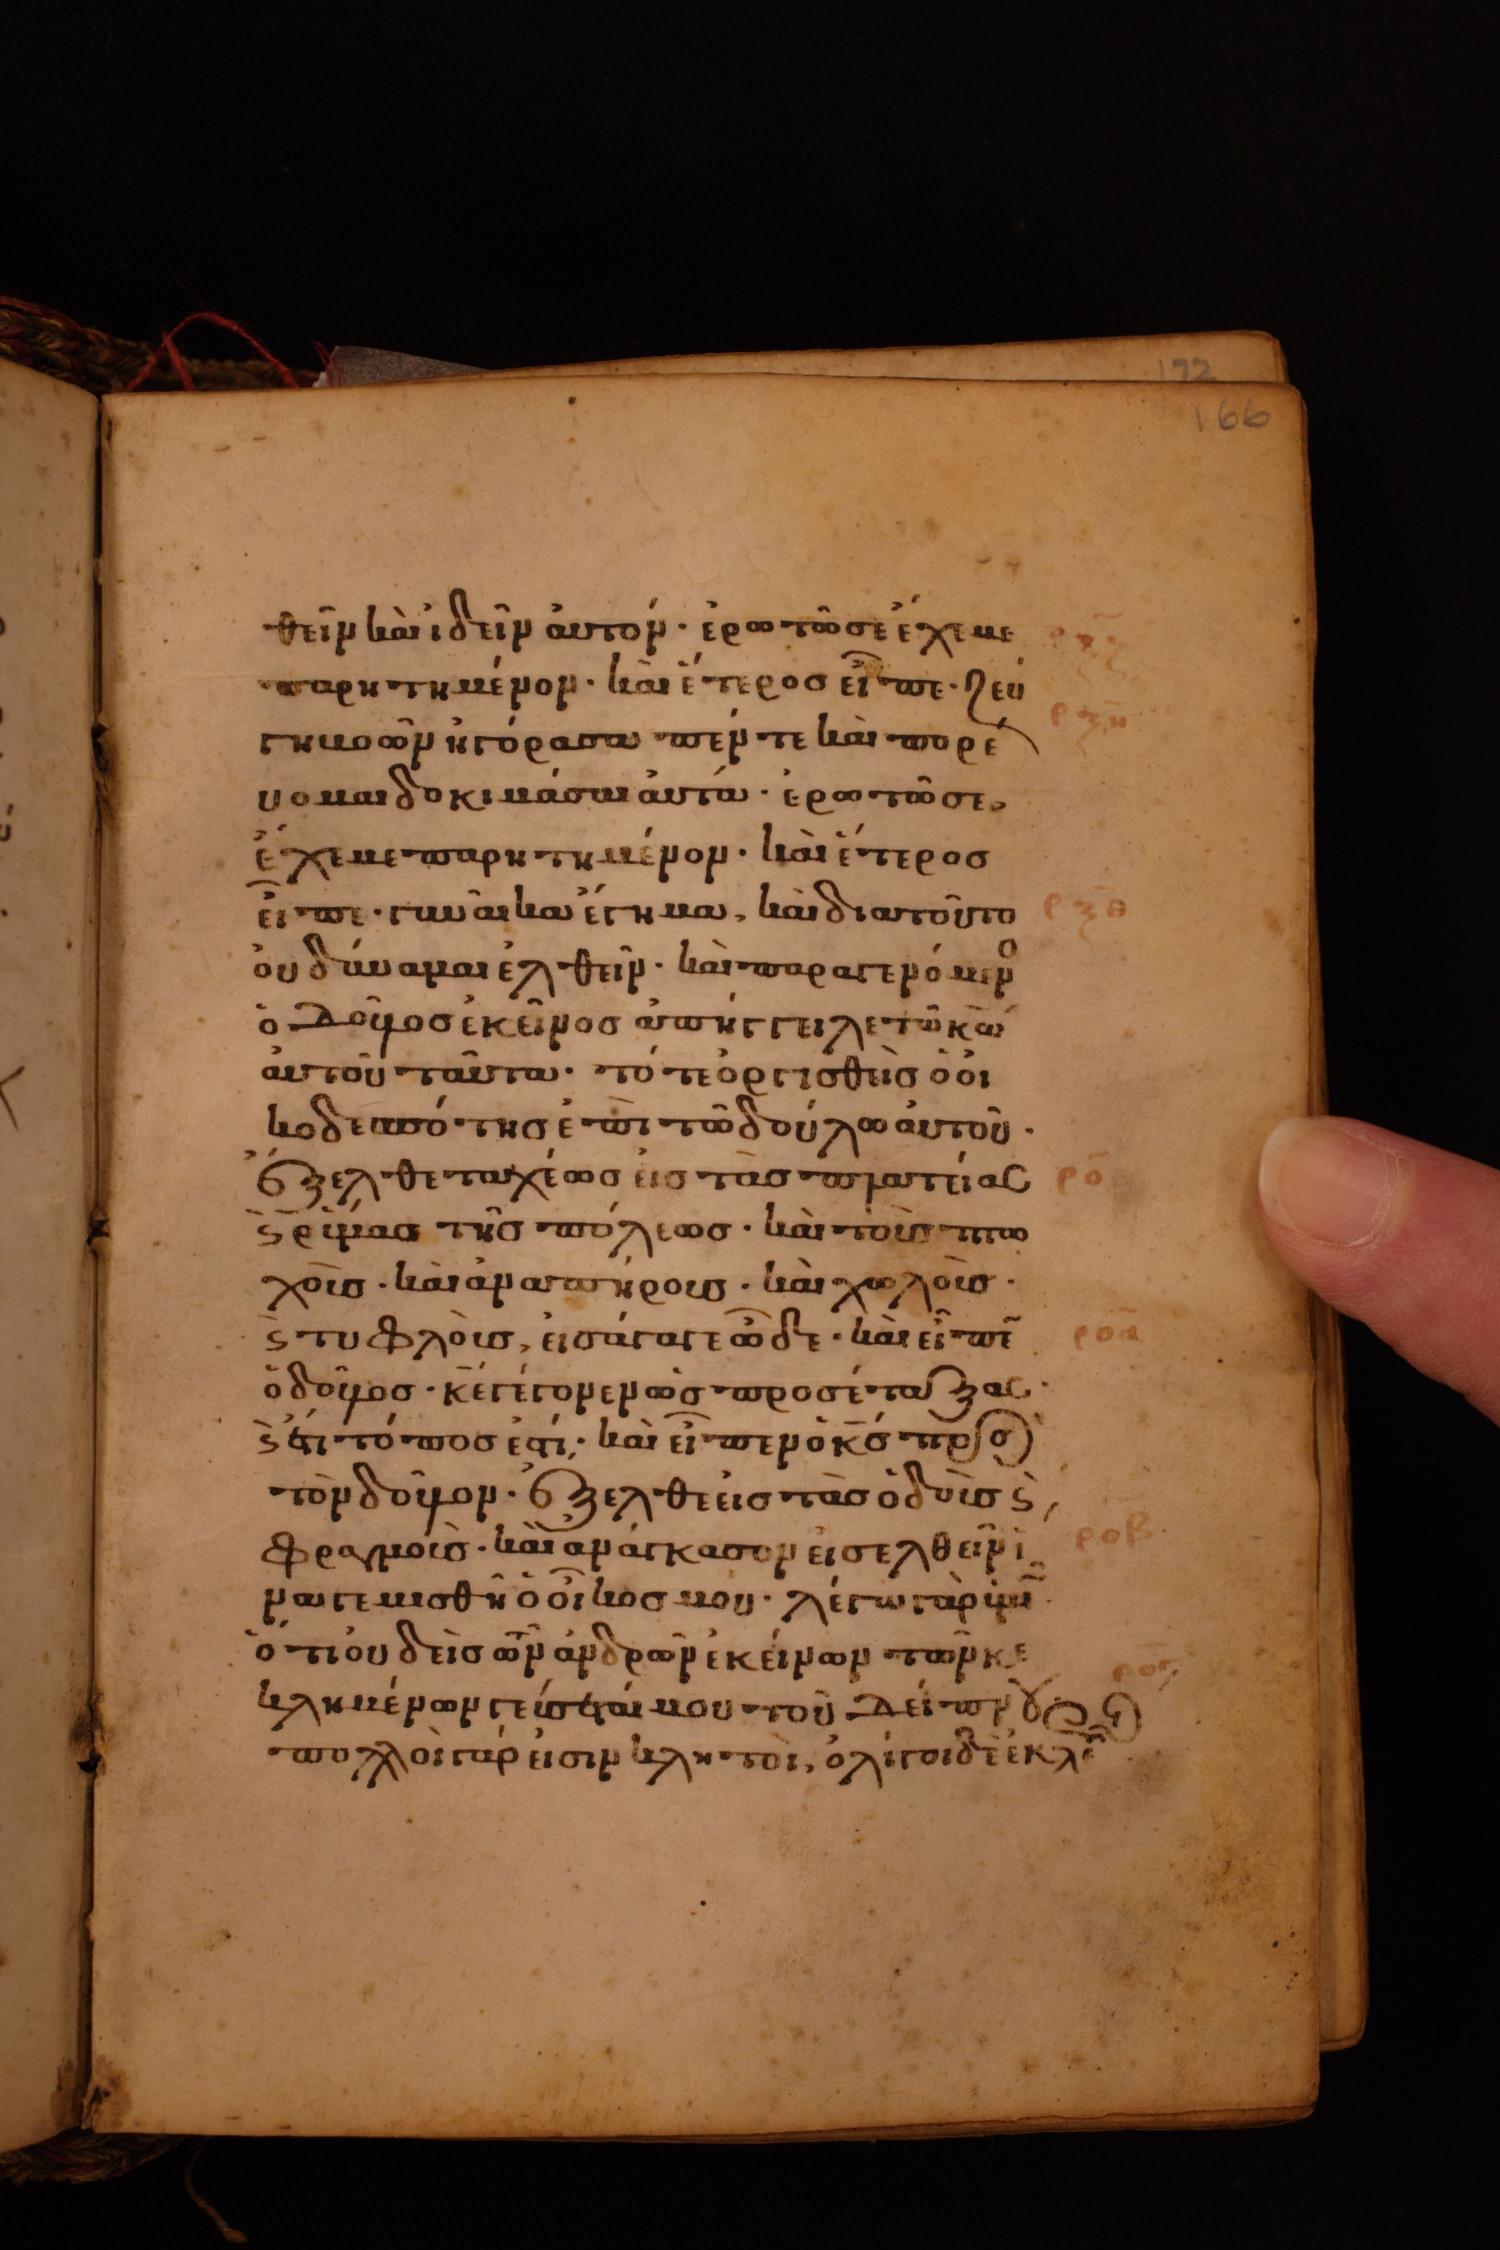 172
166
θεῖν καὶ ἰδεῖν ἀυτόν· ἐρωτῶ σε ἔχε με ρξζ
παρητημένον· καὶ ἕτερος εἶπε· ζεύ
γη βοῶν ἠγόρασα πέντε καὶ πορέ ρξη
υομαι δοκιμάσαι ἀυτά· ἐρωτῶ σε,
ἔχε με παρητημένον· καὶ ἕτερος
εἶπε· γυναῖκα ἔγημα, καὶ διατοῦτο ρξθ
ὀυ δύναμαι ἐλθεῖν· καὶ παραγενόμεν
ὁ δοῦλος ἐκεῖνος ἀπήγγειλε τῶ κω
ἀυτοῦ ταῦτα· τότε ὀργισθεὶς ὁ οἰ
κοδεσπότης ἐπὶ τῶ δούλω ἀυτοῦ·
ἔξελθε ταχέως εἰς τὰς πλατείας ρο
ϛ ῥύμας τῆς πόλεως· καὶ τοὺς πτω
χοὺς· καὶ ἀναπήρους· καὶ χωλοὺς·
ϛ τυφλοὺς, εἰσάγαγε ὧδε· καὶ εἶπε ροα
ὁ δοῦλος· κε γέγονεν ὡς προσέταξας·
ϛ ἔτι τόπος ἐστί· καὶ εἶπεν ὁ κς πρὸς
τὸν δοῦλον· ἔξελθε εἰς τὰς ὁδοὺς ϛ
φραγμοὺς· καὶ ἀνάγκασον εἰσελθεῖν ἵ ροβ
να γεμισθῆ ὁ οἶκος μου· λέγω γὰρ ὑμῖν
ὅτι ὀυδεὶς τῶν ἀνδρῶν ἐκείνων τῶν κε ρογ
κλημένων γεύσεταί μου τοῦ δείπνου
πολλοὶ γάρ εἰσιν κλητοὶ, ὀλίγοι δὲ ἐκλε